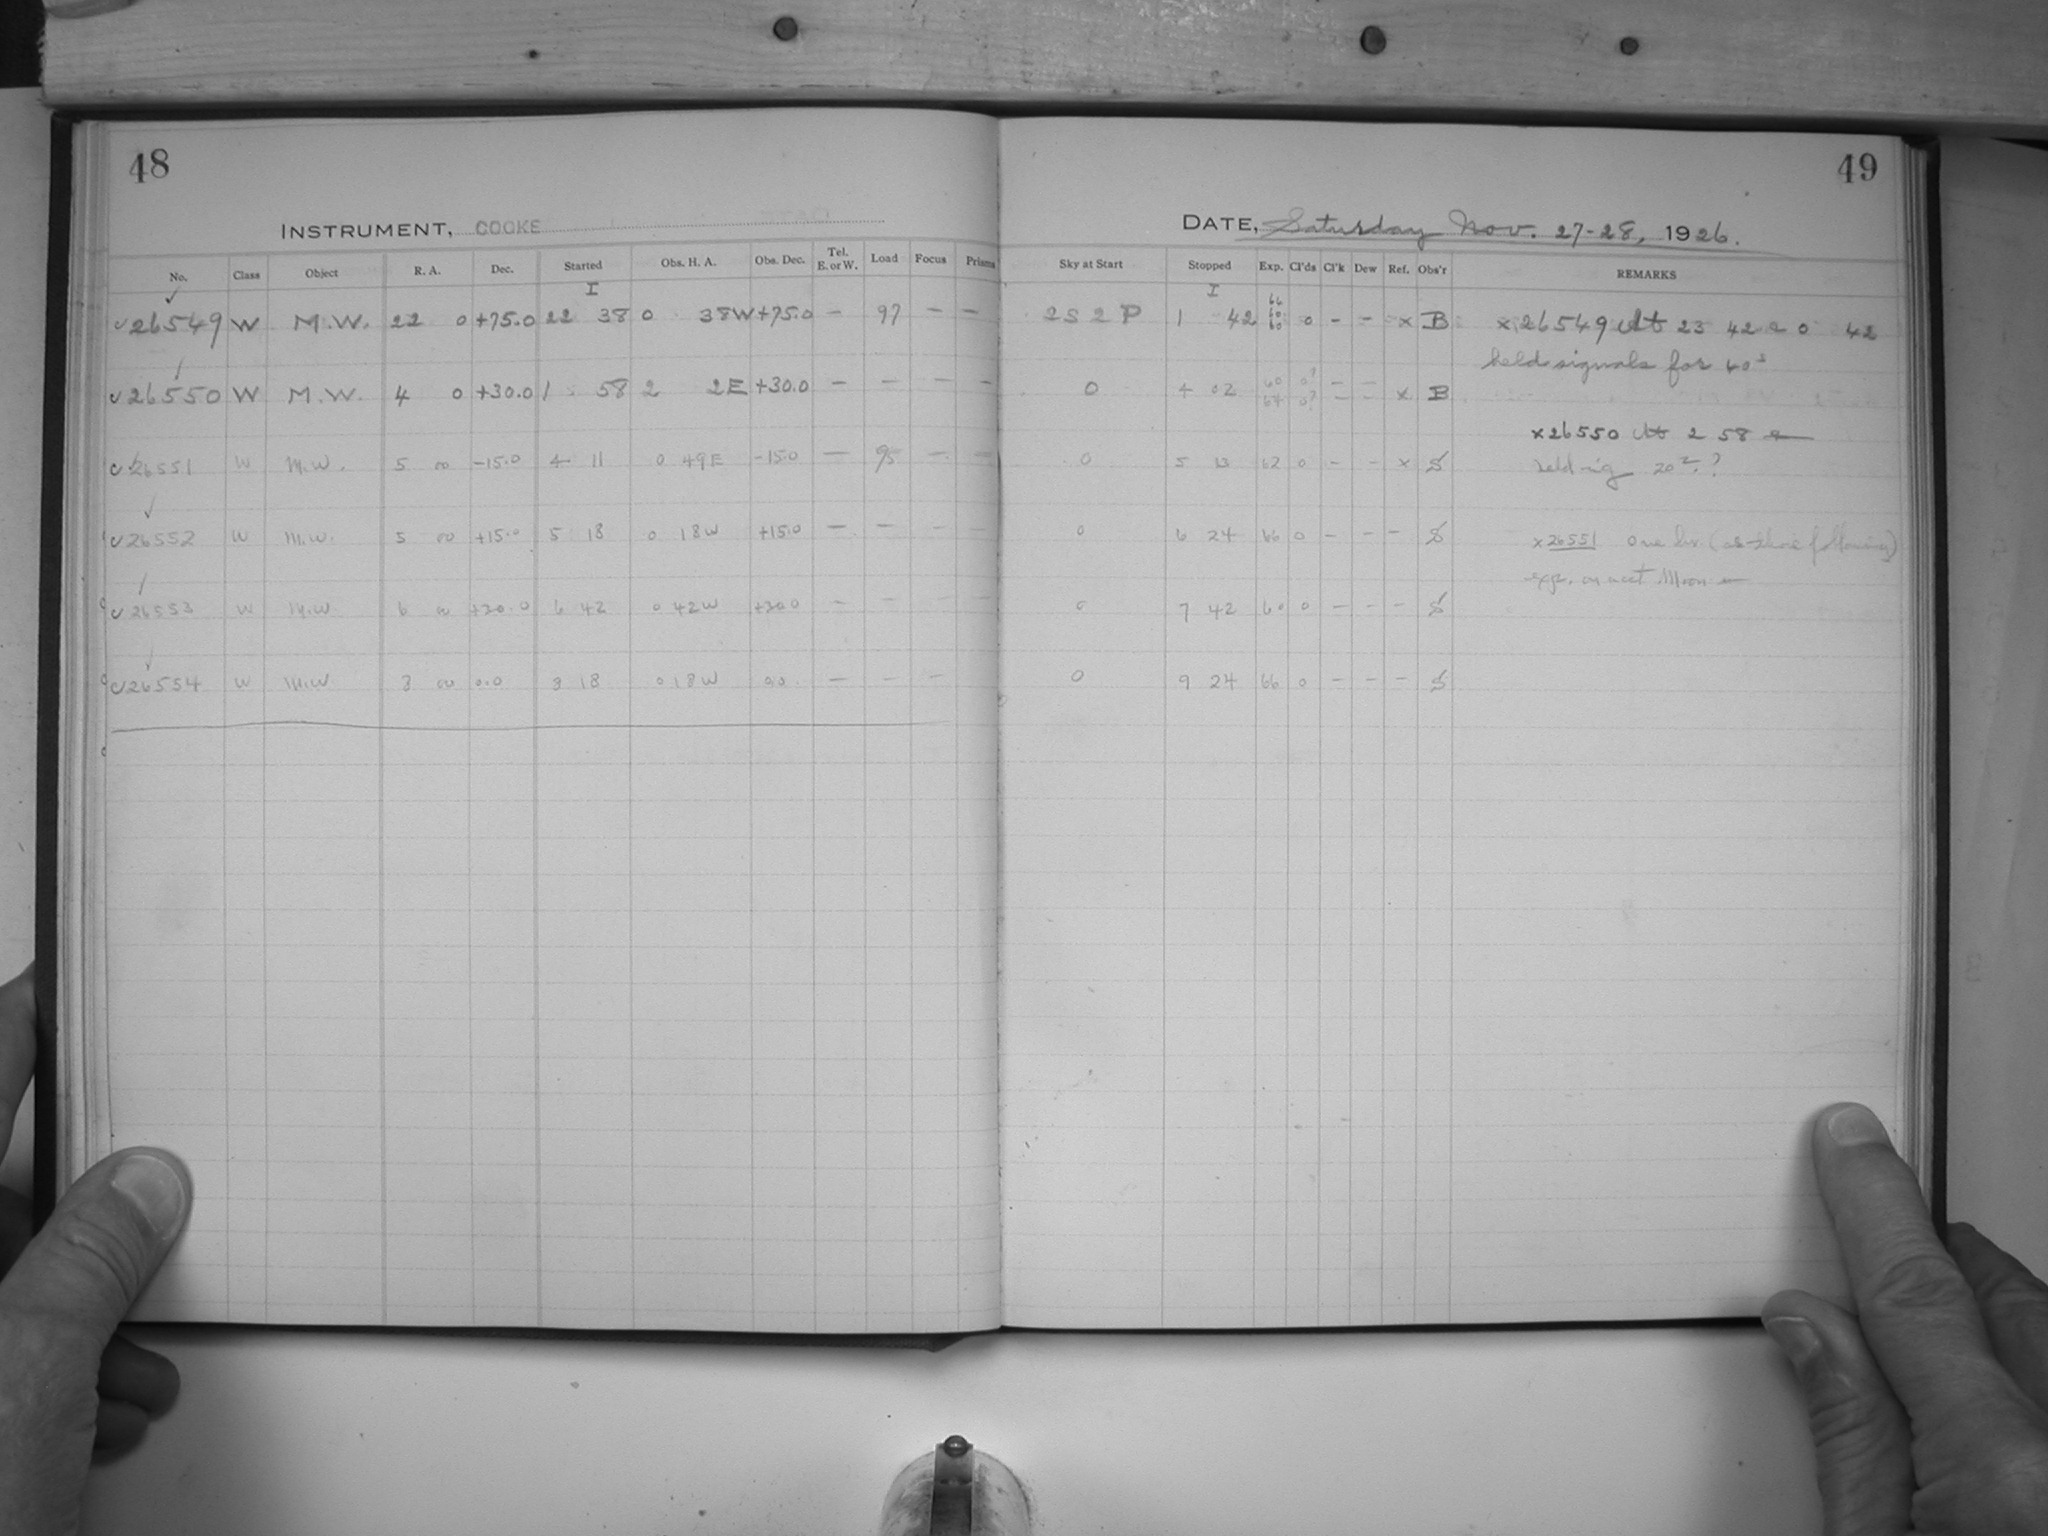 48
INSTRUMENT, COOKE
No. Class Object R. A. Dec. Started Obs. H. A. Obs. Dec. Tel. E. or W. Load Focus Prisms
I
26549 W M.W. 22 0 +75.0 22 38 0 38W +75.0 — 97 — —
26550 W M.W. 4 0 +30.0 1 58 2 2E +30.0 — — — —
26551 W M.W. 5 00 -15.0 4 11 0 49E -15.0 — 95 — —
26552 W M.W. 5 00 +15.0 5 18 0 18W +15.0 — — — —
26553 W M.W. 6 00 +30.0 6 42 0 42W +30.0 — — — —
26554 W M.W. 8 00 0.0 8 18 0 18W 0.0 — — —
49
DATE, Saturday Nov. 27-28, 1926.
Sky at Start Stopped Exp. Cl'ds Cl'k Dew Ref. Obs'r REMARKS
I
2S 2P 1 42 66 60 60 0 - - x B x 26549 At 23 42 & 0 42
held signals for 40s
0 4 02 60 64 0? 0? — — x B
x26550 At 2 58
held sig 20s.?
0 5 13 62 0 - - x S
0 6 24 66 0 - - - S
x 26551 One hr. (as the following)
exp. on acct Moon
0 7 42 60 0 — — — S
0 9 24 66 0 — — — S